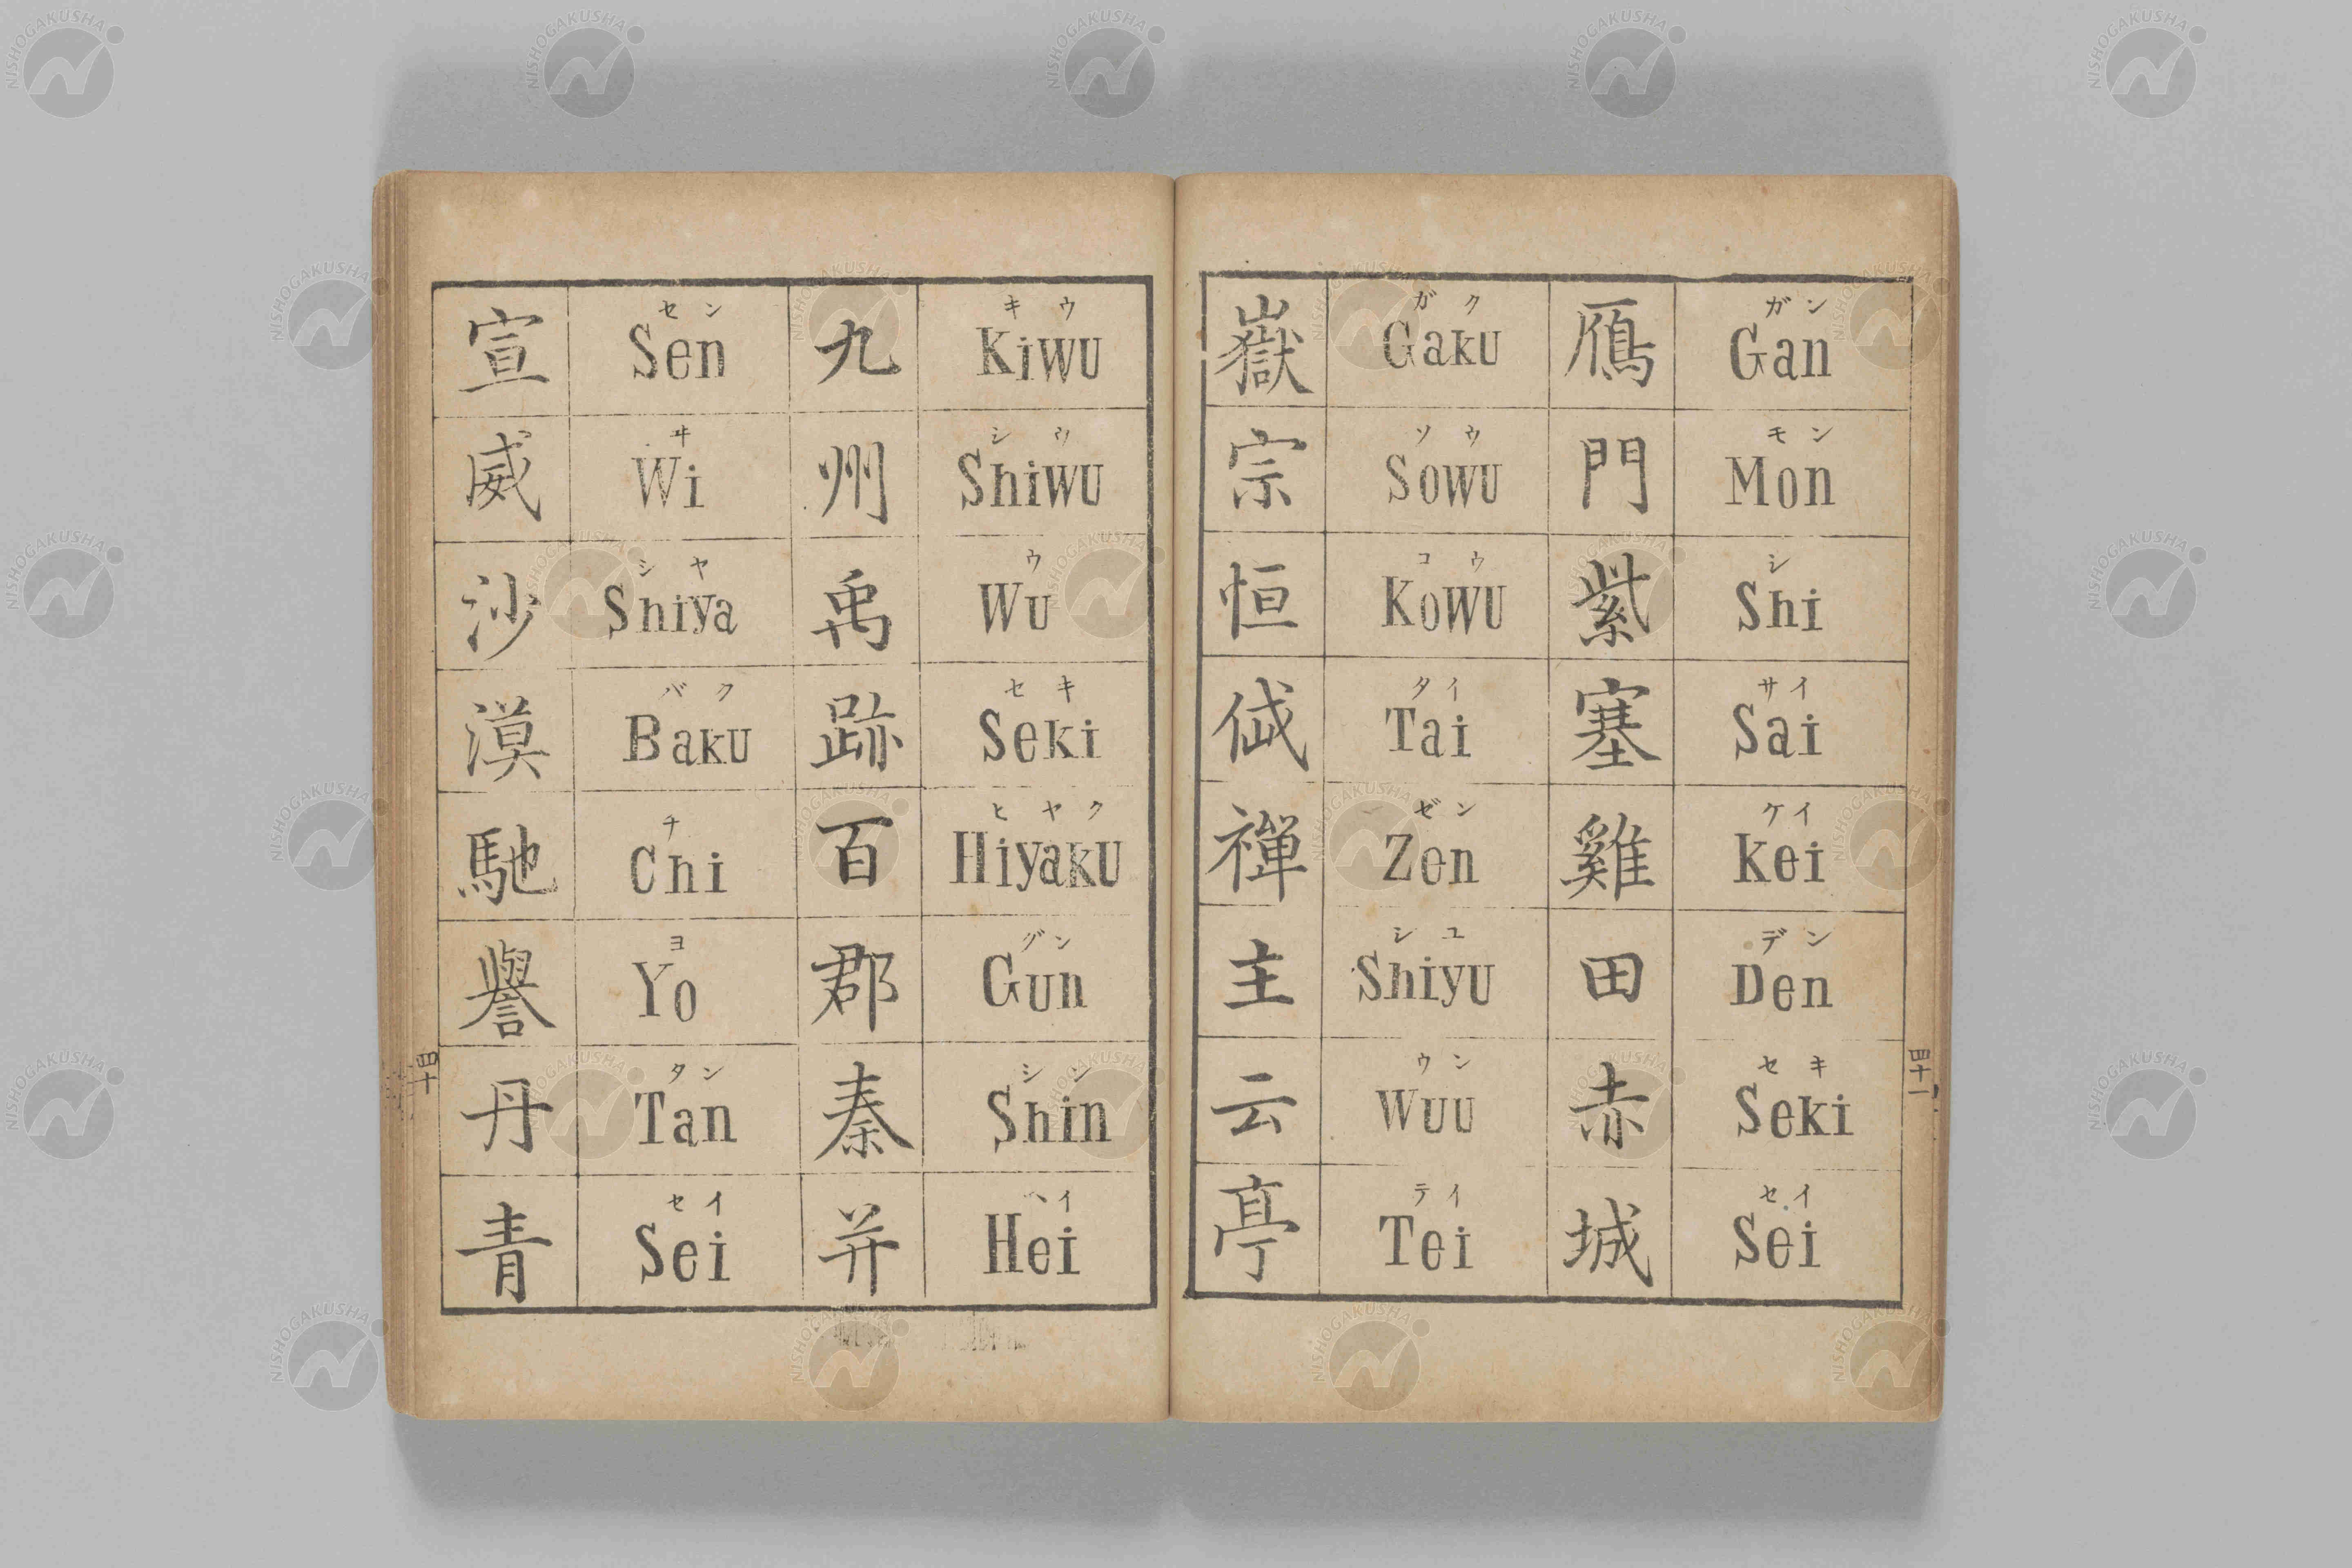 宣
セン
Sen
威
ヰ
Wi
沙
シヤ
Shiya
漠
バク
Baku
馳
チ
Chi
譽
ヨ
Yo
丹
タン
Tan
青
セイ
Sei
九
キウ
Kiwu
州
シウ
Shiwu
禹
ウ
Wu
跡
セキ
Seki
百
ヒヤク
Hiyaku
郡
グン
Gun
秦
シン
Shin
并
ヘイ
Hei
四十
嶽
ガク
Gaku
宗
ソウ
Sowu
恒
コウ
Kowu
岱
タイ
Tai
禪
ゼン
Zen
主
シユ
Shiyu
云
ウン
Wuu
亭
テイ
Tei
鴈
ガン
Gan
門
モン
Mon
紫
シ
Shi
塞
サイ
Sai
雞
ケイ
Kei
田
デン
Den
赤
セキ
Seki
城
セイ
Sei
四十一
NISHOGAKUSHA